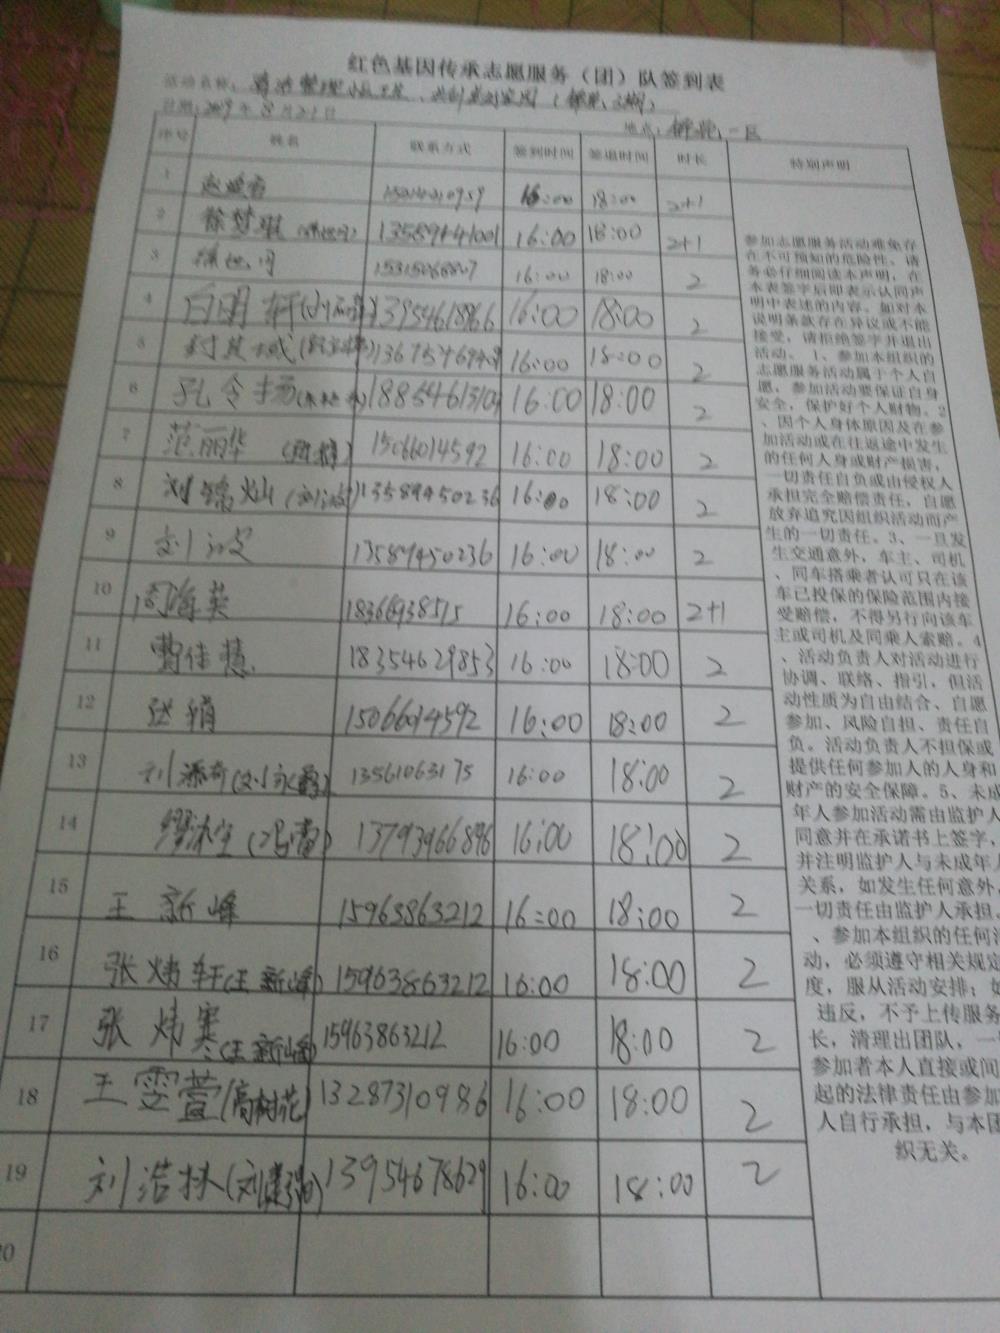 红色基因传承志愿服务（团）队签到表
活动名称：清洁整理小区卫生 共创美好家园
日期：2019年8月21日 地点：一区
序号 姓名 联系方式 签到时间 签退时间 时长 特别声明
1 16:00 18:00 2+1
2 徐梦琪 13589941001 16:00 18:00 2+1
3 16:00 18:00 2
4 白明轩 13954618966 16:00 18:00 2
5 16:00 18:00 2
6 孔令扬 16:00 18:00 2
7 范丽华 15066014592 16:00 18:00 2
8 刘 灿（刘波） 13589450236 16:00 18:00 2
9 刘波 13589450236 16:00 18:00 2
10 周海英 18366938515 16:00 18:00 2+1
11 曹佳慧 18354629853 16:00 18:00 2
12 张娟 15066014592 16:00 18:00 2
13 刘添奇（刘永霞） 13561063175 16:00 18:00 2
14 13793966896 16:00 18:00 2
15 王新峰 15963863212 16:00 18:00 2
16 张炜轩（王新峰） 15963863212 16:00 18:00 2
17 张炜寒（王新峰） 15963863212 16:00 18:00 2
18 王雯萱（高树花） 13287310986 16:00 18:00 2
19 刘浩林（刘建强） 13954678629 16:00 18:00 2
20
参加志愿服务活动难免存
在不可预知的危险性，请
务必仔细阅读本声明，在
本表签字后即表示认同声
明中表述的内容。如对本
说明条款存在异议或不能
接受，请拒绝签字并退出
活动。1、参加本组织的
志愿服务活动属于个人自
愿，参加活动要保证自身
安全，保护好个人财物。2
、因个人身体原因及在参
加活动或在往返途中发生
的任何人身或财产损害，
一切责任自负或由侵权人
承担完全赔偿责任，自愿
放弃追究因组织活动而产
生的一切责任。3、一旦发
生交通意外，车主、司机
、同车搭乘者认可只在该
车已投保的保险范围内接
受赔偿，不得另行向该车
主或司机及同乘人索赔。4
、活动负责人对活动进行
协调、联络、指引，但活
动性质为自由结合、自愿
参加、风险自担、责任自
负。活动负责人不担保或
提供任何参加人的人身和
财产的安全保障。5、未成
年人参加活动需由监护人
同意并在承诺书上签字，
并注明监护人与未成年人
关系，如发生任何意外，
一切责任由监护人承担。
、参加本组织的任何活
动，必须遵守相关规定
度，服从活动安排；如
违反，不予上传服务
长，清理出团队，一
参加者本人直接或间
起的法律责任由参加
人自行承担，与本团
织无关。